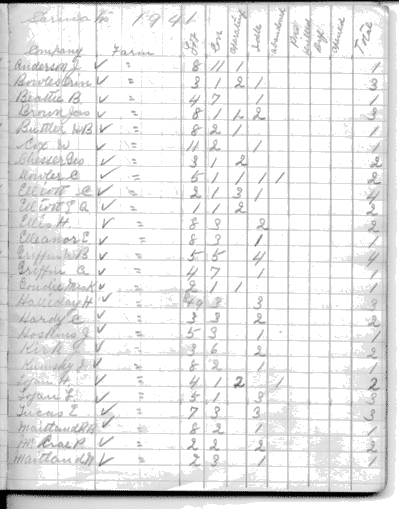 Sarnia Tp 1941
Company Farm Lot Con operating Idle abandoned Total
Anderson J ✓ " 8 11 1 1
Bowles Orin ✓ " 3 1 2 1 3
Beattie B ✓ " 4 7 1
Brown Jas ✓ " 8 1 1 2 3
Buttler H B ✓ " 8 2 1 1
Cox W ✓ " 11 2 1 1
Chester Geo ✓ " 3 1 2 2
C ✓ " 5 1 1 1 1 2
Elliott C ✓ " 2 1 3 1 4
Elliott E A ✓ " 1 1 2 2
Ellis H ✓ " 8 3 2 2
Elleanor E ✓ " 8 3 1 1
Griffin W B ✓ " 5 5 4 4
Griffin A ✓ " 4 7 1 1
✓ " 2 1 1 1
Halliday H ✓ " 3 3 3
Hardy C ✓ " 3 3 2 2
Hoskins J ✓ " 5 3 1 1
Kirk J ✓ " 3 6 2 2
J ✓ " 8 2 1 1
Logan H ✓ " 4 1 2 1 2
Logan L ✓ " 5 1 3 3
Lucas E ✓ " 7 3 3 3
Maitland R H ✓ " 8 2 1 1
McCrae P ✓ " 2 2 2 2
Maitland N ✓ " 2 3 1 1